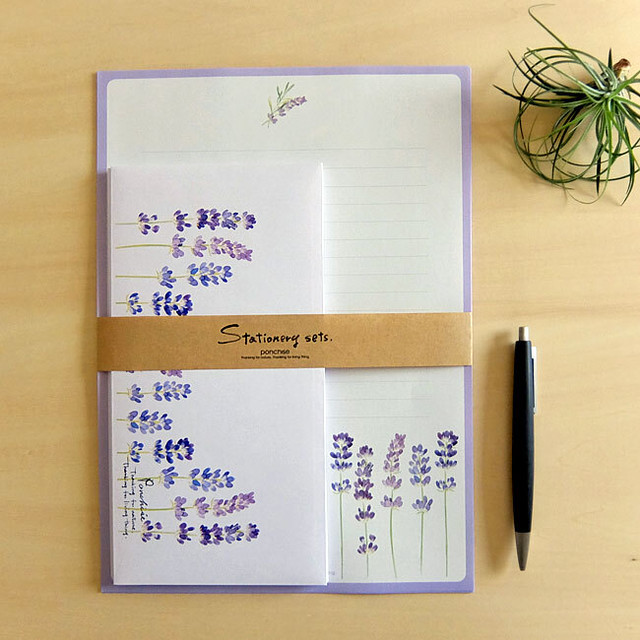 Stationery sets.
ponchise
Thanking for nature, Thanking for living thing.
Ponchise
Thanking to nature
Thanking to living things